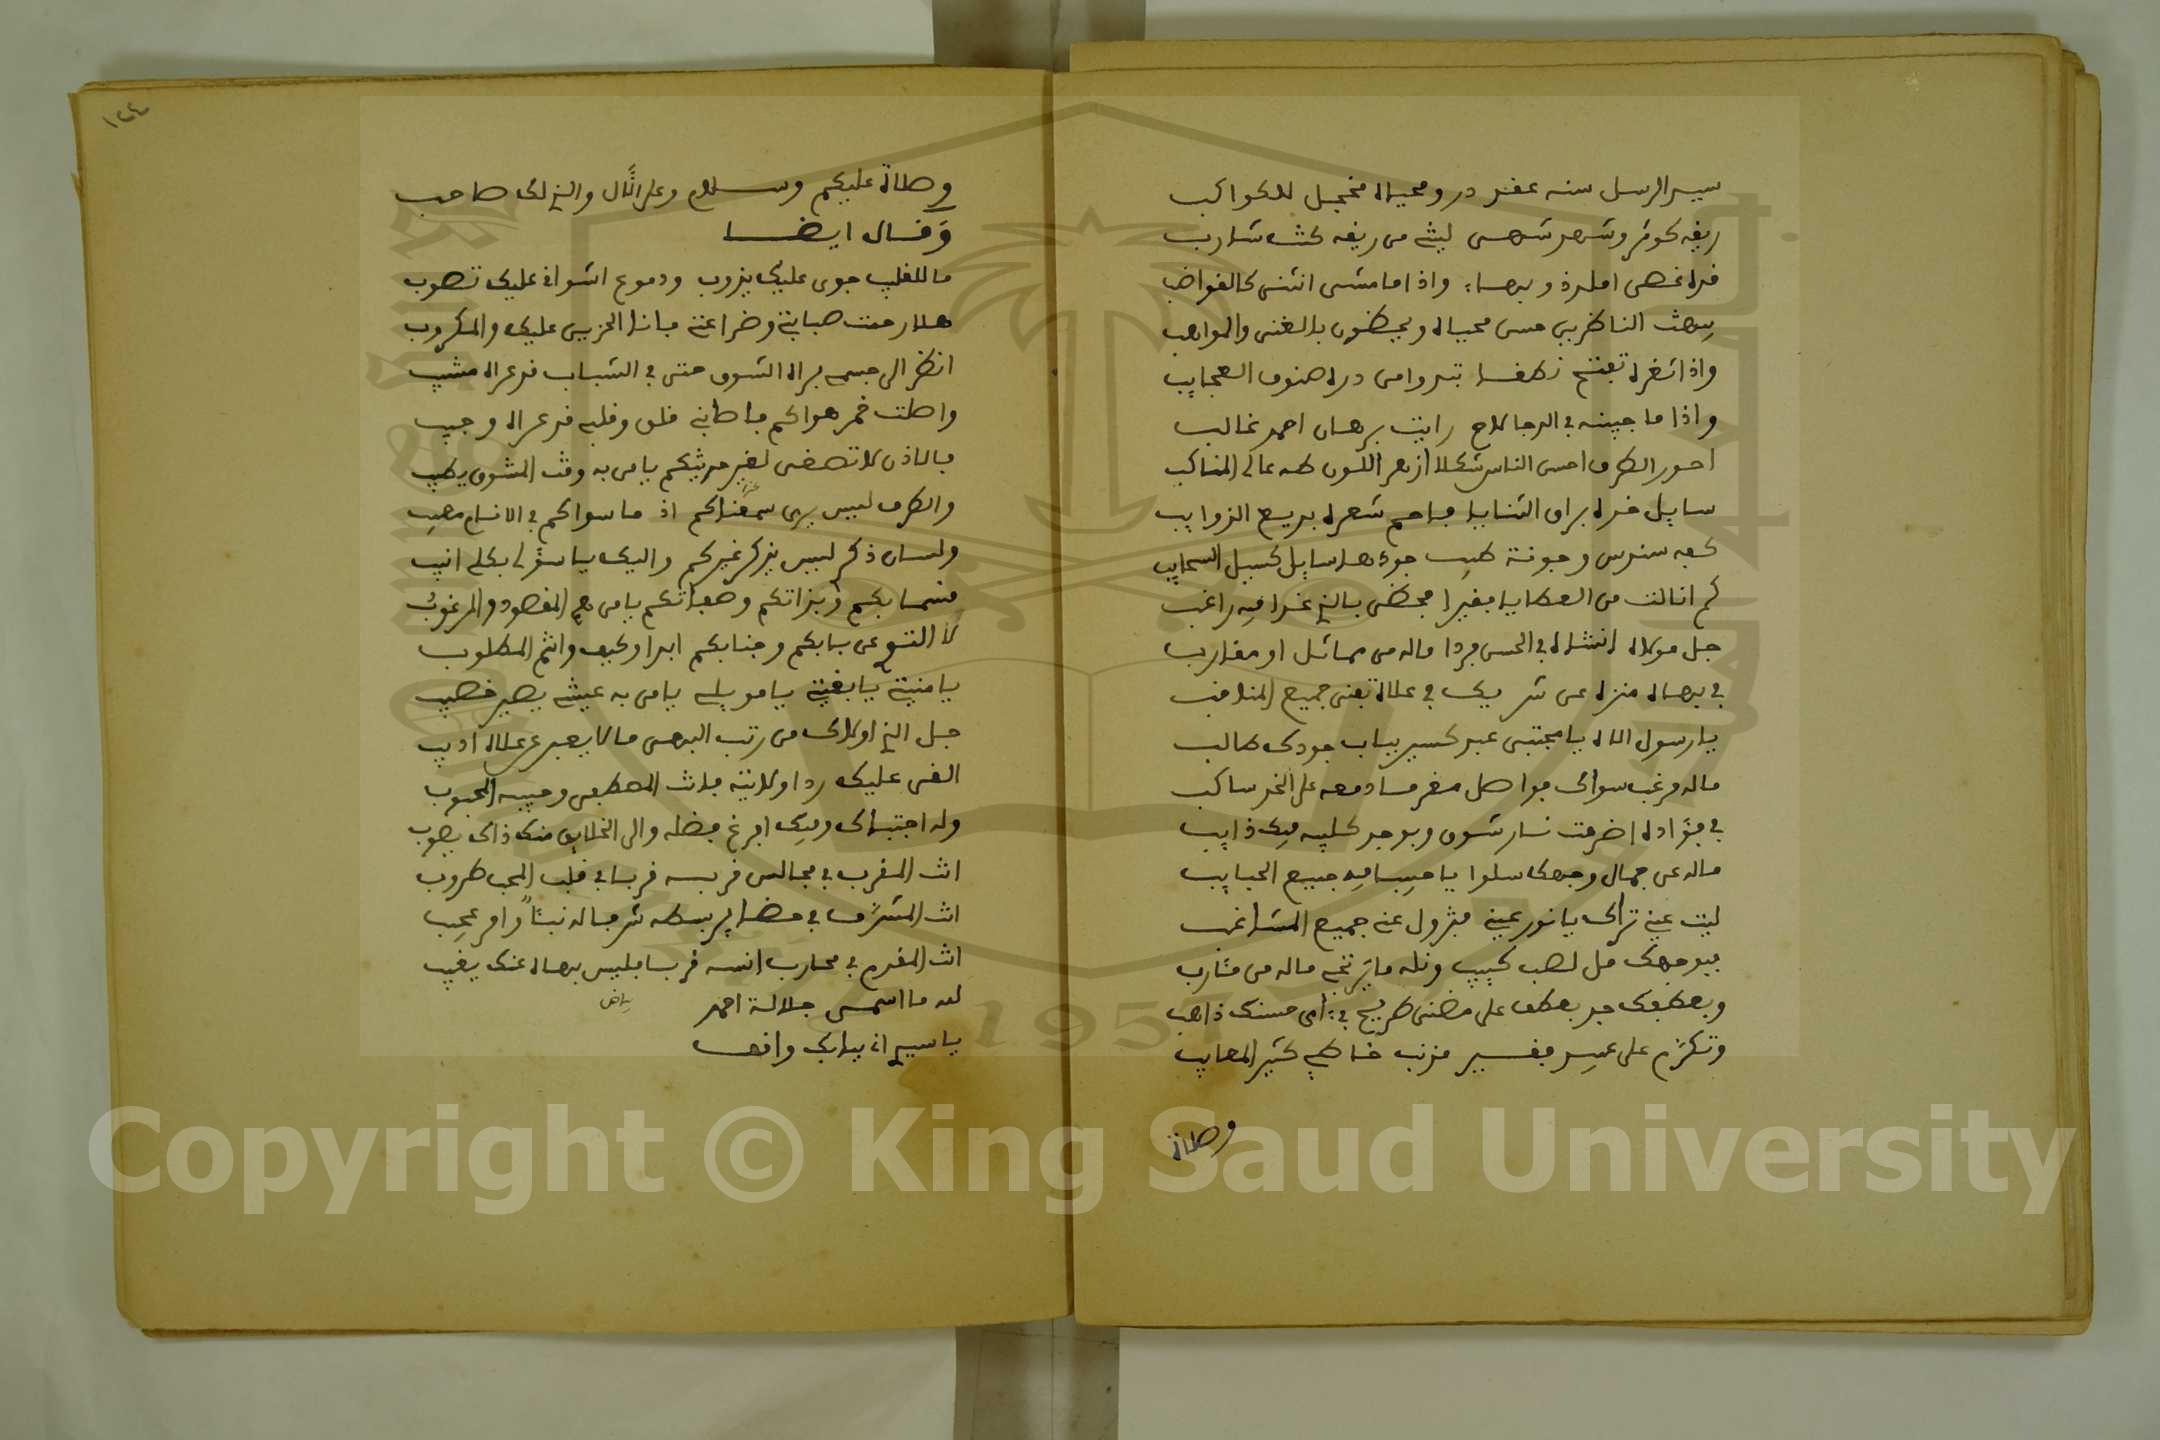 سيد الرسل سنه عقد در ومحياه مخجل للكواكب
ريقه كوثر وشهد شهى ليتنى من ريقه كنت شارب
قده غصن املد وبهاء واذا ما مشى انثنى كالقواضب
يبهت الناظرين حسن محياه ويحظون بالغنى والمواهب
واذا ثغره تفتح نطقا تبدوا من دره صنوف العجايب
واذا ما جبينه فى الدجا لاح رايت برهان احمد غالب
احور الطرف احسن الناس شكلا ازهر اللون طه عالى المناكب
سايل خده براق الثنايا فاحم شعره بديع الذوايب
كفه سندس وجونة طيب جودها سايل كسيل السحايب
كم انالت من العطايا فقيرا فحظى بالذى غدا فيه راغب
جل مولاه انشاه فى الحسن فردا ماله من مماثل او مقارب
فى بهاه منزه عن شريك فى علاه تفنى جميع المناقب
يا رسول الاله يا مجتبى عبد كسير بباب جودك طالب
ماله مرغب سواك فواصل مغرما دمعه على الخد ساكب
فى فؤاده اضرمت نار شوق وبوجد كليبه فيك ذايب
ماله عن جمال وجهك سلوا يا حبيبا فيه جميع الحبايب
ليت عينى تراك يا نور عينى فيزول عنى جميع المتاعب
فبوجهك حل لصب كييب ونله ما يرتجيه ماله من مئارب
وبعطفك جد بعطف على مضنى طريح فى امن حسنك ذاهب
وتكرم على عبيد فقير مذنب خاطى كثير المعايب
وصلاة
١٢٤
وصلاة عليكم وسلام وعلى الآل والذى لك صاحب
وقال ايضا
ما للقلب جوى عليك يذوب ودموع اشواقى عليك تصوب
هلا رحمت صبابتى وضراعتى فانا الحزين عليك والمكروب
انظر الى جسم براه الشوق حتى فى الشباب قد عراه مشيب
واصلت خمر هواكم فاصابنى قلق وقلبى قد عراه وجيب
فالاذن لا تصغى لغير حديثكم يا من به وقت المشوق يطيب
والطرف ليس يرى سمعناكم اذ ما سواكم فى الانام معيب
ولسان ذكرى ليس يذكر غيركم واليك يا سؤلى بكلى انيب
قسما بكم وبذاتكم وصفاتكم يا من هم المقصود والمرغوب
لا التوى عن بابكم وجنابكم ابدا وكيف وانتم المطلوب
يا منيتى يا بغيتى يا مويلى يا من به عيشى يصير خصيب
جل الذى اولاك من رتب البهى ما لا يعبر عن علاه اديب
القى عليك ردا ولايته فانت المصطفى وحبيبه المحبوب
وله اجتباك وفيك افرغ فضله والى الخلايق منك ذاك يصوب
انت المقرب فى مجالس قربه قربا فى قلب المحب طروب
انت المشرف فى حضاير بسطه شرفا له نبئا وافر عجيب
انت المفرد فى محارب انسه قربا فليس بهاه عنك يغيب
لله ما اسمى جلالة احمد بياض
يا سيدى انى ببابك واقف